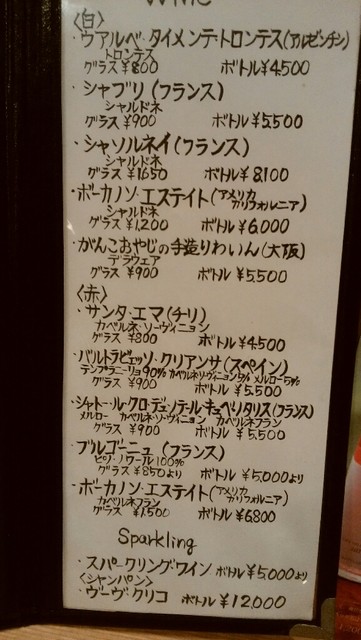 Wine
〈白〉
・ウアルベ・タイメンテ・トロンテス(アルゼンチン)
トロンテス
グラス ¥800 ボトル¥4,500
・シャブリ (フランス)
シャルドネ
グラス ¥900 ボトル ¥5,500
・シャソルネイ(フランス)
シャルドネ
グラス ¥1,650 ボトル ¥8,100
・ボーカノン・エステイト(アメリカ カリフォルニア)
シャルドネ
グラス ¥1,200 ボトル ¥6,000
・がんこおやじの手造りわいん(大阪)
デラウェア
グラス ¥900 ボトル ¥5,500
〈赤〉
・サンタ・エマ(チリ)
カベルネ・ソーヴィニョン
グラス ¥800 ボトル ¥4,500
・バルトラビエッソ・クリアンサ(スペイン)
テンプラニーリョ90% カベルネ・ソーヴィニョン5% メルロー5%
グラス ¥900 ボトル ¥5,500
・シャトー・ル・クロ・デュ・ノテル・キュベ・リタリス(フランス)
メルロー カベルネ・ソーヴィニョン カベルネフラン
グラス ¥900 ボトル ¥5,500
・ブルゴーニュ (フランス)
ピノ・ノワール100%
グラス ¥850より ボトル ¥5,000より
・ボーカノン・エステイト(アメリカ カリフォルニア)
カベルネフラン
グラス ¥1,500 ボトル ¥6,800
Sparkling
・スパークリングワイン ボトル ¥5,000より
〈シャンパン〉
・ヴーヴ・クリコ ボトル ¥12,000